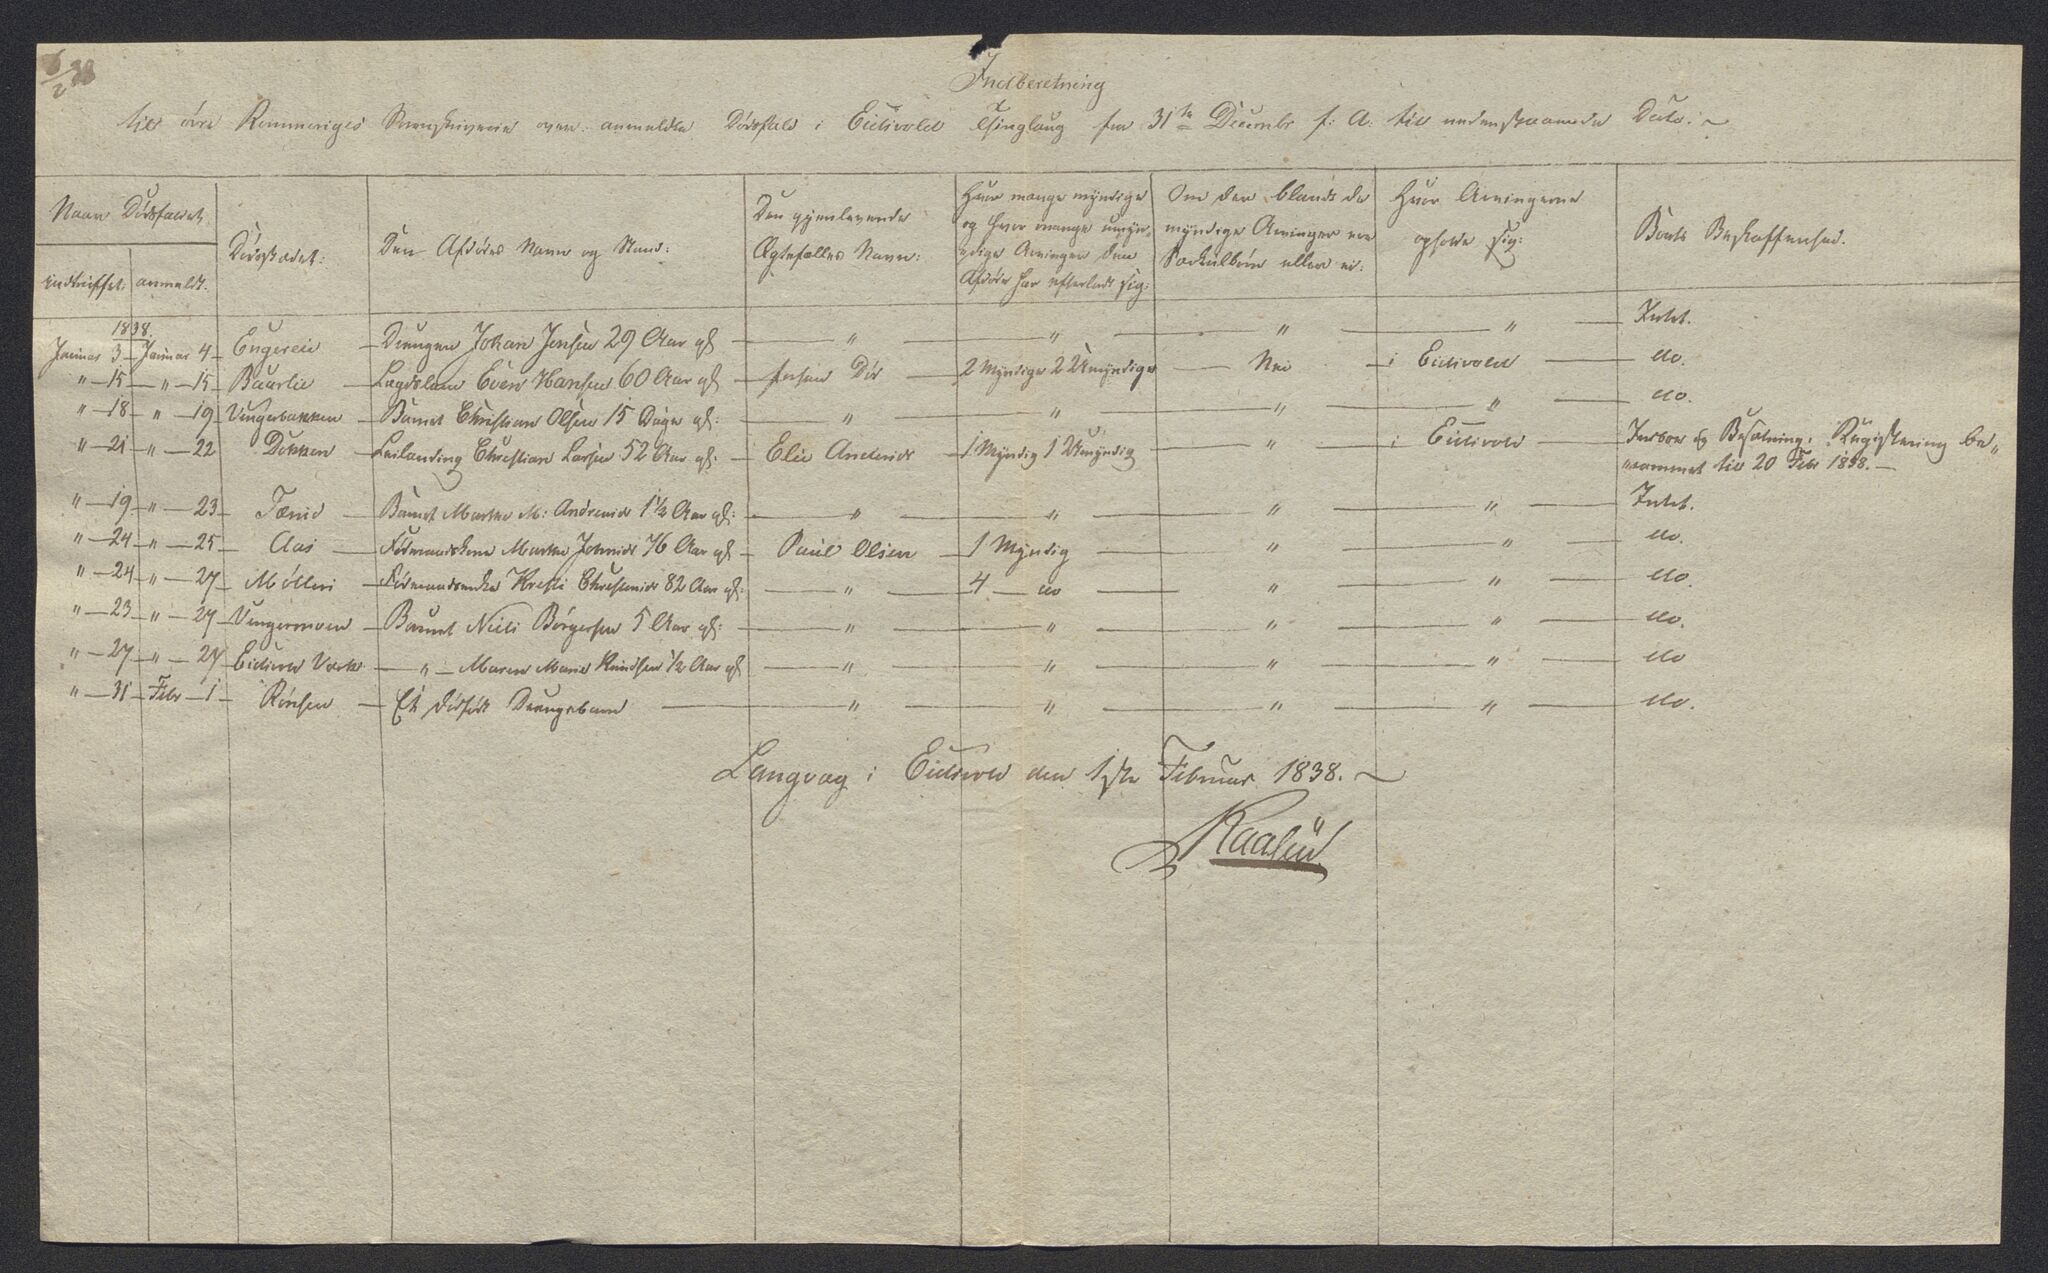 6/2 38
Indberetning
til övre Rommeriges Sorenskriverie over anmeldte Dödsfald i Eidsvold Thinglaug fra 31te Decembr f: A: til nedenstaaende Dato.
Naar Dödsfaldet
indtruffet: anmeldt:
Dödsstedet:
Den Afdödes Navn og Stand:
Den gjenlevende
Ægtefælles Navn:
Hvor mange myndige
og hvor mange umyn-
dige Arvinger den
Afdöde har efterladt sig:
Om der blandt de
myndige Arvinger ere
Særkulbörn eller ei:
Hvor Arvingerne
opholde sig:
Boets Beskaffenhed.
1838.
Januar 3 Januar 4 Drengen Johan Jensen 29 Aar gl " " " " Intet.
" 15 " 15 Baarlie Lægdslem Even Hansen 60 Aar gl forhen Död 2 Myndige 2 Umyndige Nei i Eidsvold do.
" 18 " 19 Vingerbakken Barnet Christian Olsen 15 Dage gl: " " " " do.
" 21 " 22 Dokken Leilænding Christian Larsen 52 Aar gl: Elie Andersd 1 Myndig 1 Umyndig " i Eidsvold Indboe og Besætning, Registering be"
"rammet til 20 Febr 1838.
" 19 " 23 Barnet Marthe M: 1 1/2 Aar gl: " " " " Intet.
" 24 " 25 Aas Födraadskone Marthe 76 Aar gl Paul Olsen 1 Myndig " " do.
" 24 " 27 Mölleri Födraadsenke Kresti Christensd 82 Aar gl: " 4 do " " do.
" 23 " 27 Vingermoen Barnet Niels Börgersen 5 Aar gl: " " " " do.
" 27 " 27 Eidsvold Værk " Maren Marie Knudsen 1/2 Aar gl " " " " do
" 31 Febr 1 Rönsen Et dödfödt Drengebarn " " " " do.
Langvag i Eidsvold den 1ste Februar 1838.
Kaasen